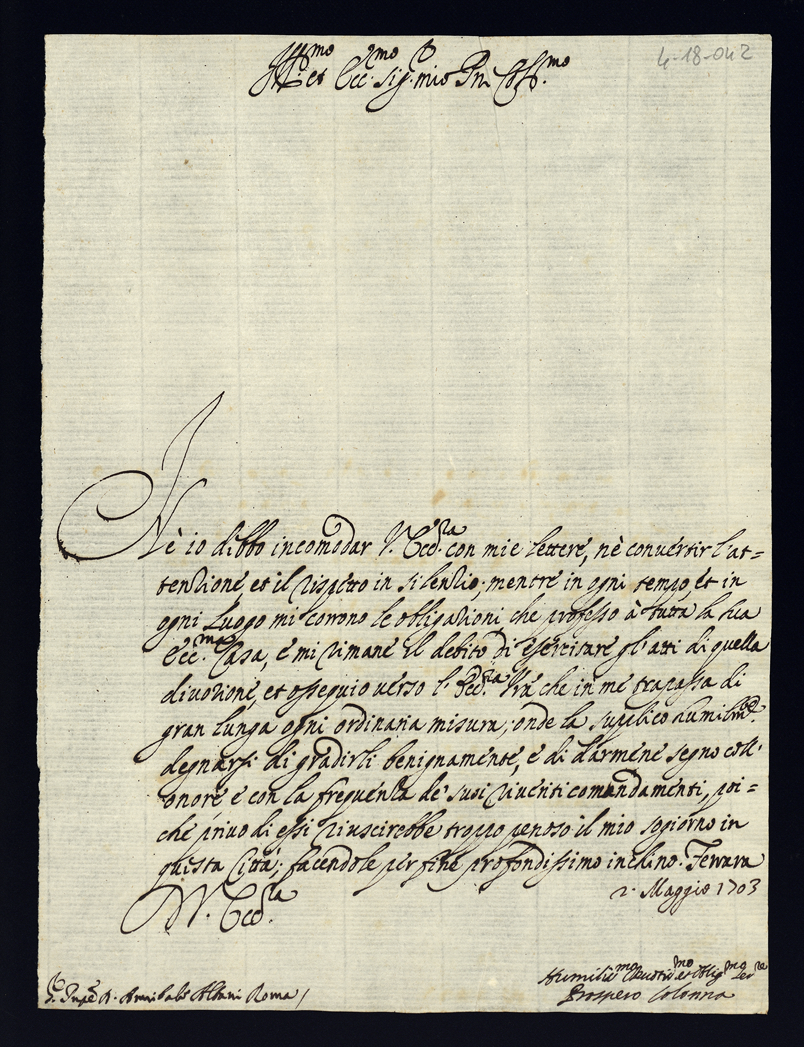 4-18-042
Ill.mo et Ecc.mo Sig.r mio Pn Col.mo
Nè io debbo incomodar V. Ecc.za con mie lettere, nè convertir l'at=
tenzione, et il rispetto in silenzio; mentre in ogni tempo, et in
ogni luogo mi corrono le obligazioni che professo à tutta la sua
Ecc.ma Casa, e mi rimane il debito di esercitare gl'atti di quella
divozione, et ossequio verso l' Ecc.za Vra che in me trapassa di
gran lunga ogni ordinaria misura; onde la supplico humilm.te
degnarsi di gradirli benignamente, e di darmene segno coll'
onore e con la frequenza de' suoi riveriti comandamenti, poi=
che privo di essi riuscirebbe troppo penoso il mio sogiorno in
questa Città; facendole per fine profondissimo inchino. Ferrara
2. Maggio 1703
D V. Ecc.za
Humiliss.mo Devotis.mo et Oblig.mo Ser.re
Prospero Colonna
Annibale Albani Roma /